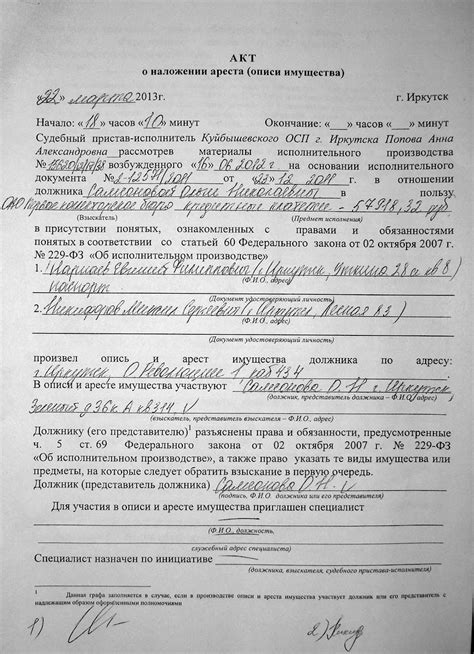 АКТ
о наложении ареста (описи имущества)
«22» марта 2013г. г. Иркутск
Начало: «18» часов «10» минут Окончание: «__» часов «__» минут
Судебный пристав-исполнитель Куйбышевского ОСП г. Иркутска Попова Анна
Александровна рассмотрев материалы исполнительного производства
возбужденного «16» 06.2012 г. на основании исполнительного
документа № 2-1257/2011 от «23» 12.2011 г. в отношении
должника Самсоновой в пользу
ОАО Первое коллекторское бюро кредитный платеж - 57918,32 руб.
(Взыскатель) (Предмет исполнения)
в присутствии понятых, ознакомленных с правами и обязанностями
понятых в соответствии со статьей 60 Федерального закона от 02 октября 2007 г.
№ 229-ФЗ «Об исполнительном производстве»
1. Евгений Филиппович г. Иркутск, 28 кв 8)
(Ф.И.О., адрес)
паспорт
(Документ удостоверяющий личность)
2. Никифоров Михаил Сергеевич (Иркутск, Лесная 83)
(Ф.И.О., адрес)
(Документ удостоверяющий личность)
произвел опись и арест имущества должника по адресу:
г. Иркутск, О. Революции 1 каб 434
В описи и аресте имущества участвуют Самсонова О.Н г. Иркутск,
(должник, представитель должника – Ф.И.О.)
Зеленый д 36к. А кв 314, V
(взыскатель, представитель взыскателя – Ф.И.О., адрес)
Должнику (его представителю)¹ разъяснены права и обязанности, предусмотренные
ч. 5 ст.69 Федерального закона от 02 октября 2007 г. № 229-ФЗ
«Об исполнительном производстве», а также право указать те виды имущества или
предметы, на которые следует обратить взыскание в первую очередь.
Должник (представитель должника) Самсонова О.Н. V
(подпись, Ф.И.О. должника или его представителя)
Для участия в описи и аресте имущества приглашен специалист
(Ф.И.О., должность,
служебный адрес специалиста)
Специалист назначен по инициативе
(должника, взыскателя, судебного пристава-исполнителя)
¹ Данная графа заполняется в случае, если в производстве описи и ареста имущества участвует должник или его представитель с
надлежащим образом оформленными полномочиями
1) 2)